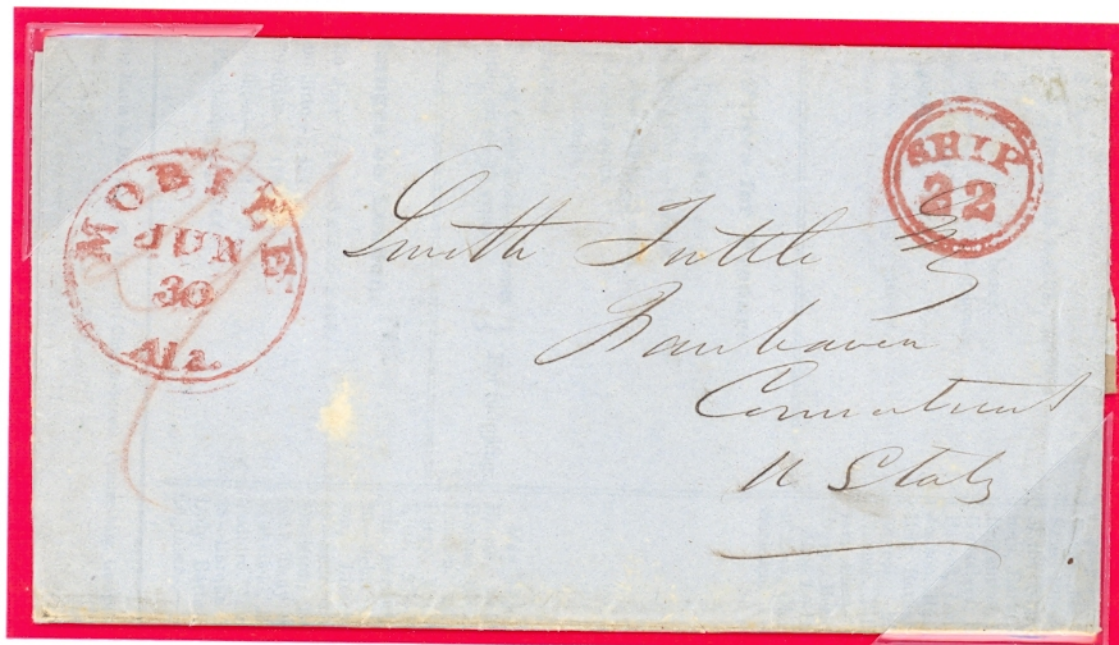 MOBILE
JUN
30
Ala.
SHIP
22
Smith Tuttle Esq
Fairhaven
Connecticut
U States